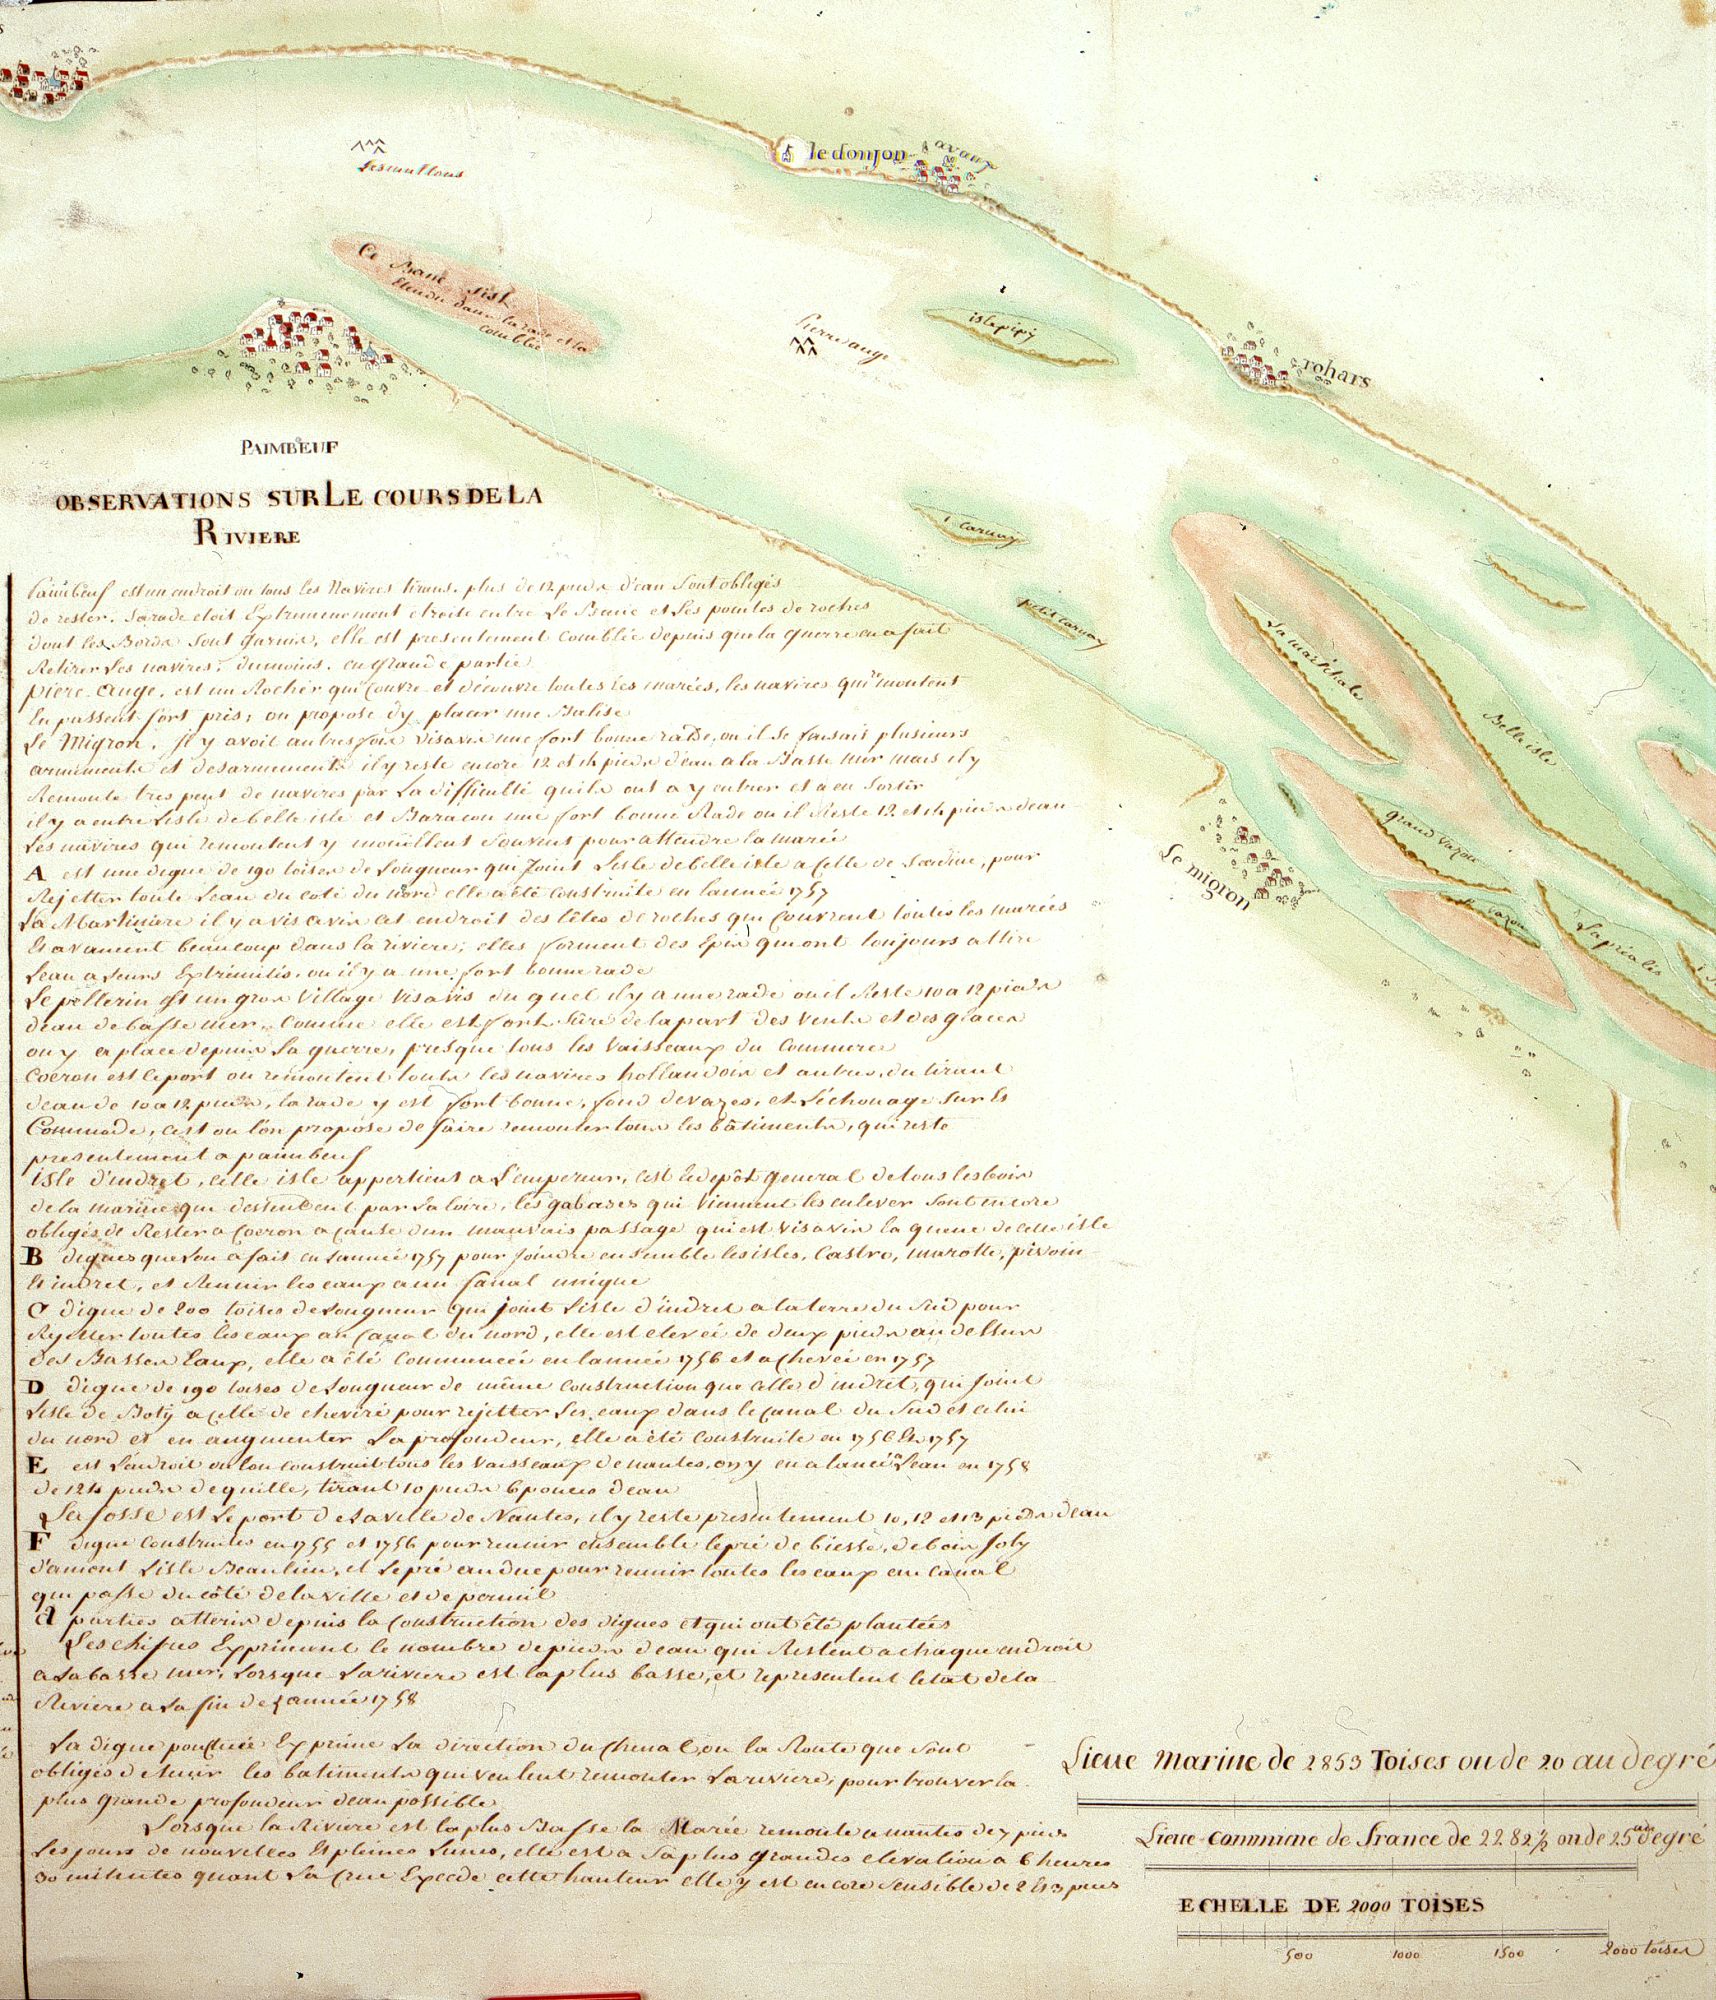 Les mouttons
le donjon
avaux
Ce Banc sist
Etendu dans la rade et la
Comblée
Pierre ange
isle pipy
rohars
PAIMBEUF
OBSERVATIONS SUR LE COURS DE LA
RIVIERE
I. Carnay
petit carnay
La maréchale
Belle isle
grand vazou
P. vazou
La préalés
Le migron
Paimbeuf est un endroit ou tous les Navires tirans plus de 12 pieds d'eau sont obligés
de rester. Sa rade etoit Extremement etroite entre Le Banc et Les pointes de roches
dont les Bords sont garnis, elle est presentement comblée depuis que la guerre en a fait
Retirer Les navires, du moins en grande partie
piere-ange, est un Rocher qui couvre et découvre toutes les marées, les navires qui montent
En passent fort près; on propose d'y placer une Balise
Le Migron, il y avoit autrefois visavis une fort bonne rade, ou il se faisait plusieurs
armements et desarmements il y reste encore 12 et 14 pieds d'eau a la Basse mer mais il y
Remonte tres peut de navires par La difficulté quils ont a y entrer et a en Sortir
il y a entre L'isle de belle isle et Baracon une fort bonne Rade ou il Reste 12 et 14 pieds d'eau
Les navires qui remontent y mouillent Souvent pour attendre la marée
A est une digue de 190 toises de Longueur qui Joint L'isle de belle isle a Celle de Sardine, pour
Rejetter toute L'eau du coté du nord elle a été Construite en L'année 1757
La Martiniere il y a vis avis cet endroit des têtes de roches qui Couvrent toutes les marées
Et avancent beaucoup dans la riviere; elles forment des Epis qui ont toujours attiré
L'eau a Leurs Extrémités, ou il y a une fort bonne rade
Le pellerin est un gros Village Vis avis du quel il y a une rade ou il Reste 10 a 12 pieds
d'eau de basse mer, Comme elle est fort Sûre de la part des vents et des glaces
on y a place depuis La guerre, presque tous les Vaisseaux du Commerce
Coeron est le port ou remontent touts les navires hollandois et autres, du tirant
d'eau de 10 a 12 pieds, la rade y est fort bonne, fond de vazes, et L'échouage Sur et
Commode, c'est ou l'on propose de faire remonter tous les bâtiments, qui reste
presentement a paimbeuf
isle d'indret, cette isle appertient a L'empereur, c'est le depôt general de tous les bois
de la marine qui dessendent par La loire, les gabares qui viennent les enlever Sont encore
obligés de Rester a Coeron a cause d'un mauvais passage qui est visavis la queue de cette isle
B digues que L'on a fait en L'année 1757 pour Joindre ensemble les isles, Castro, marotte, pivoin
Et indret, et Reunir les eaux a un Canal unique
C digue de 200 toises de Longueur qui joint L'isle d'indret a la terre du Sud pour
Rejetter toutes les eaux au Canal du nord, elle est elevée de deux pieds au dessus
des Basses Eaux, elle a été Commencée en L'année 1756 et achevée en 1757
D digue de 190 toises de Longueur de même construction que celle d'indret, qui Joint
L'isle de Boty a Celle de cheviré pour rejetter Les eaux dans le Canal du Sud et celui
du nord et en augmenter La profondeur, elle a été Construite en 1756 Et 1757
E est L'endroit ou L'on construit tous les Vaisseaux de nantes, on y en a lancé a L'eau en 1758
de 124 pieds de quille, tirant 10 pieds 6 pouces d'eau
La fosse est Le port de La ville de Nantes, il y reste presentement 10, 12 et 13 pieds d'eau
F digue Construites en 1755 et 1756 pour reunir ensemble le pré de biesse, de bois Joly
d'amont L'isle Beaulieu, et Le pré au duc pour reunir toutes les eaux au Canal
qui passe du côté de la ville et de permil
parties atteris depuis la Construction des digues et qui ont été plantées
Les chifres Expriment le nombre de pieds d'eau qui Restent a chaque endroit
a La basse mer, Lorsque La riviere est la plus basse, et representent l'etat de la
Riviere a La fin de l'année 1758
La digue ponctuée Exprime La direction du Chenal, ou la Route que Sont
obligés de Suivir les batiments qui veulent remonter La riviere, pour trouver la
plus grande profondeur d'eau possible
Lorsque la Riviere est la plus Basse la Marée remonte a nantes de 7 pieds
Les jours de nouvelles Et pleines Lunes, elle est a Sa plus grandes elevation a 6 heures
30 minutes quant La Crue Excede cette hauteur elle y est encore Sensible de 2 Et 3 pieds
Lieue Marine de 2853 Toises ou de 20 au degré
Lieue Commune de france de 2282 1/2 ou de 25 au degré
ECHELLE DE 2000 TOISES
500 1000 1500 2000 toises